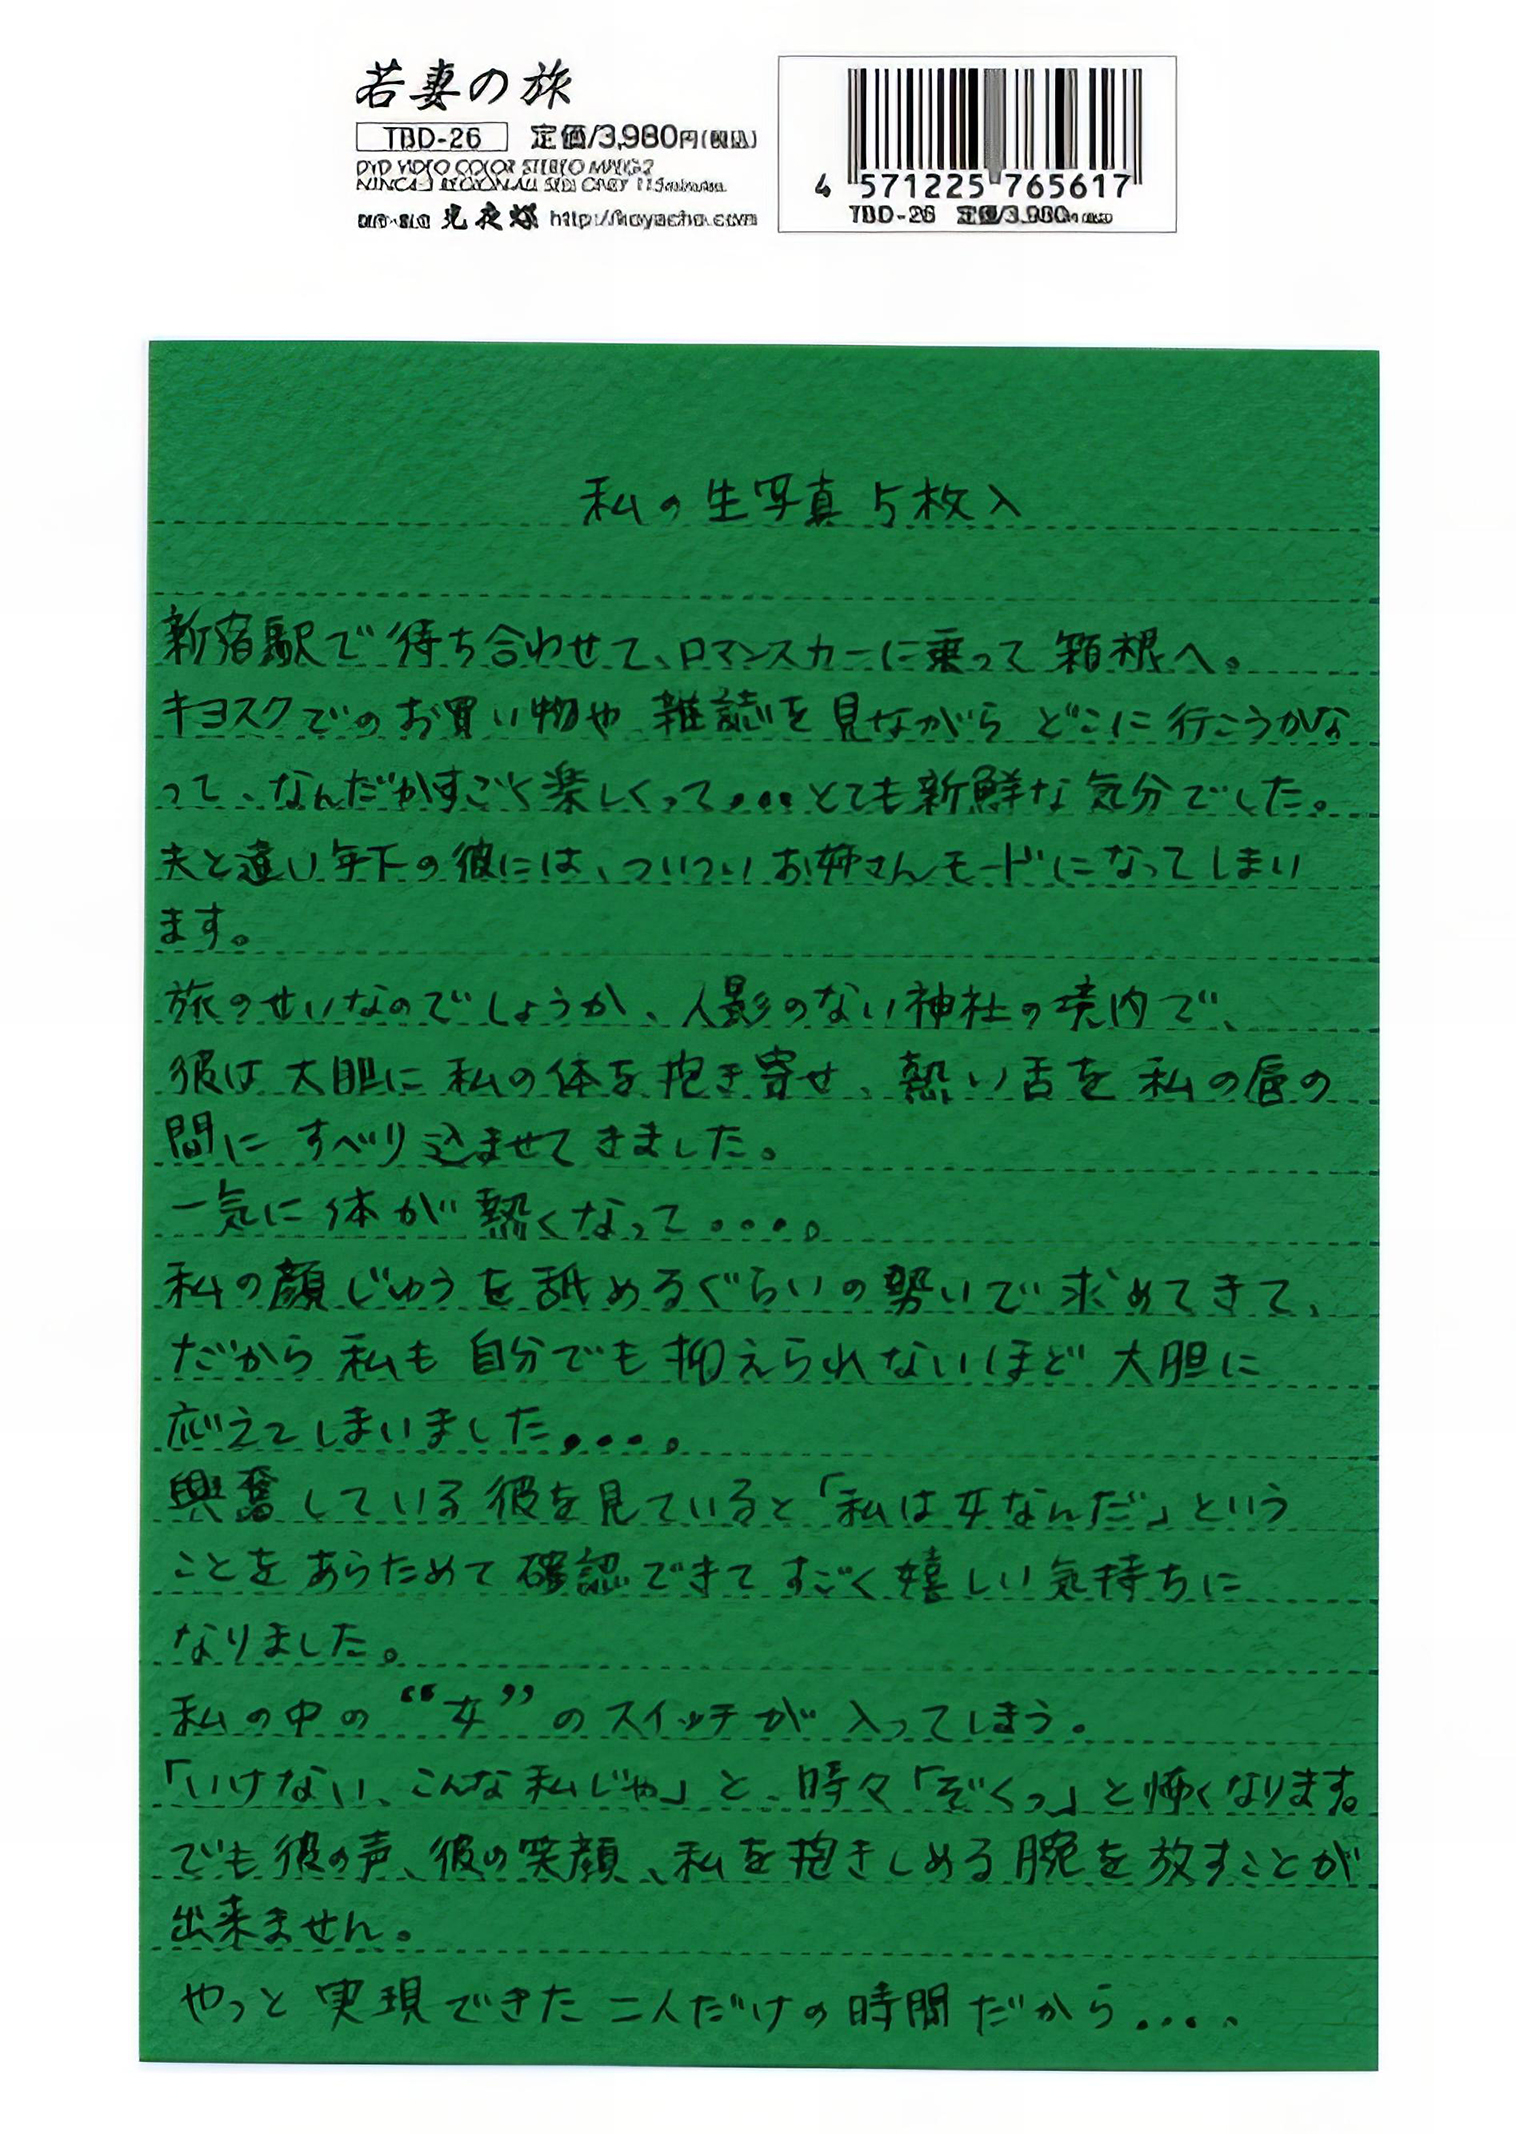 若妻の旅
TBD-26 定価/3,980円(税込)
DVD VIDEO COLOR STEREO
http://
4 571225 765617
TBD-26 定価/3,980円
私の生写真5枚入
新宿駅で待ち合わせて、ロマンスカーに乗って箱根へ。
キヨスクでのお買い物や雑誌を見ながらどこに行こうかな
って、なんだかすごく楽しくって...とても新鮮な気分でした。
夫と違い年下の彼には、ついついお姉さんモードになってしまい
ます。
旅のせいなのでしょうか、人影のない神社の境内で、
彼は大胆に私の体を抱き寄せ、熱い舌を私の唇の
間にすべり込ませてきました。
一気に体が熱くなって....。
私の顔じゅうを舐めるぐらいの勢いで求めてきて、
だから私も自分でも抑えられないほど大胆に
応えてしまいました....。
興奮している彼を見ていると「私は女なんだ」という
ことをあらためて確認できてすごく嬉しい気持ちに
なりました。
私の中の“女”のスイッチが入ってしまう。
「いけない、こんな私じゃ」と、時々「ぞくっ」と怖くなります。
でも彼の声、彼の笑顔、私を抱きしめる腕を放すことが
出来ません。
やっと実現できた二人だけの時間だから....